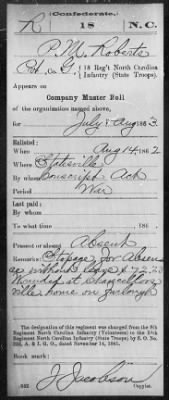 Confederate.
R 18 N.C.
P. M. Roberts
Co. G, 18 Reg't North Carolina
Infantry (State Troops).
Appears on
Company Muster Roll
of the organization named above,
for July & Aug 1863
Enlisted:
When Aug 14, 1862
Where Statesville
Conscript Act
Period War
Last paid:
By whom
To what time , 186 .
Present or absent Absent
Remarks: Stopage for absen
ce without leave $72.23
Wounded at Chancellors
ville home on furlough
The designation of this regiment was changed from the 8th
Regiment North Carolina Infantry (Volunteers) to the 18th
Regiment North Carolina Infantry (State Troops) by S. O. No.
222, A. & I. G. O., dated November 14, 1861.
Book mark:
J. Jacobson
(642) Copyist.